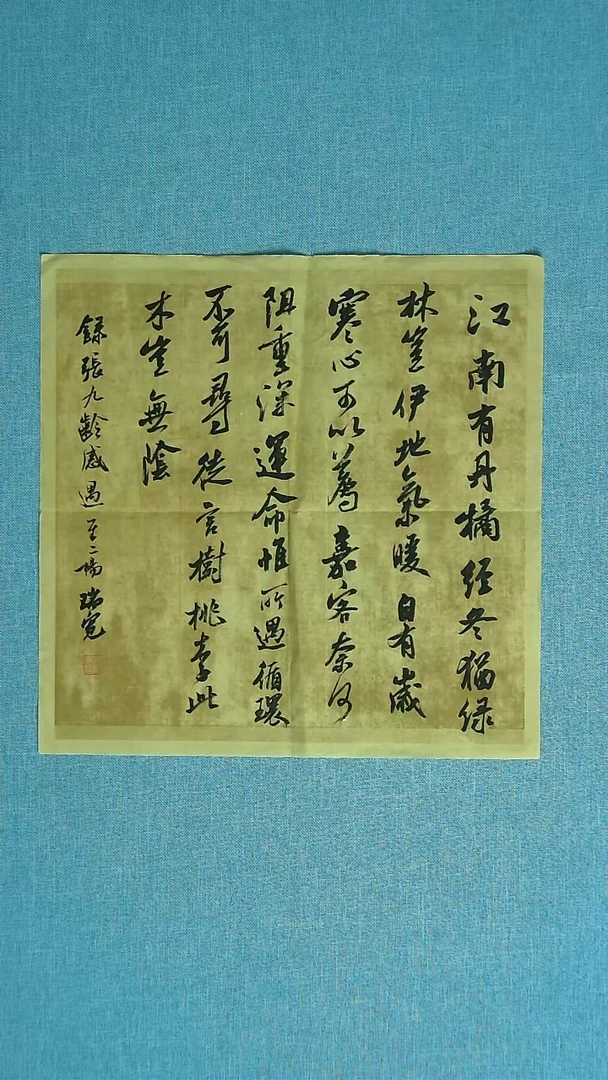 江南有丹橘經冬猶緑
林豈伊地氣暖自有歲
寒心可以薦嘉客奈何
阻重深運命惟所遇循環
不可尋徒言樹桃李此
木豈無陰
錄張九齡感遇 瑞寬